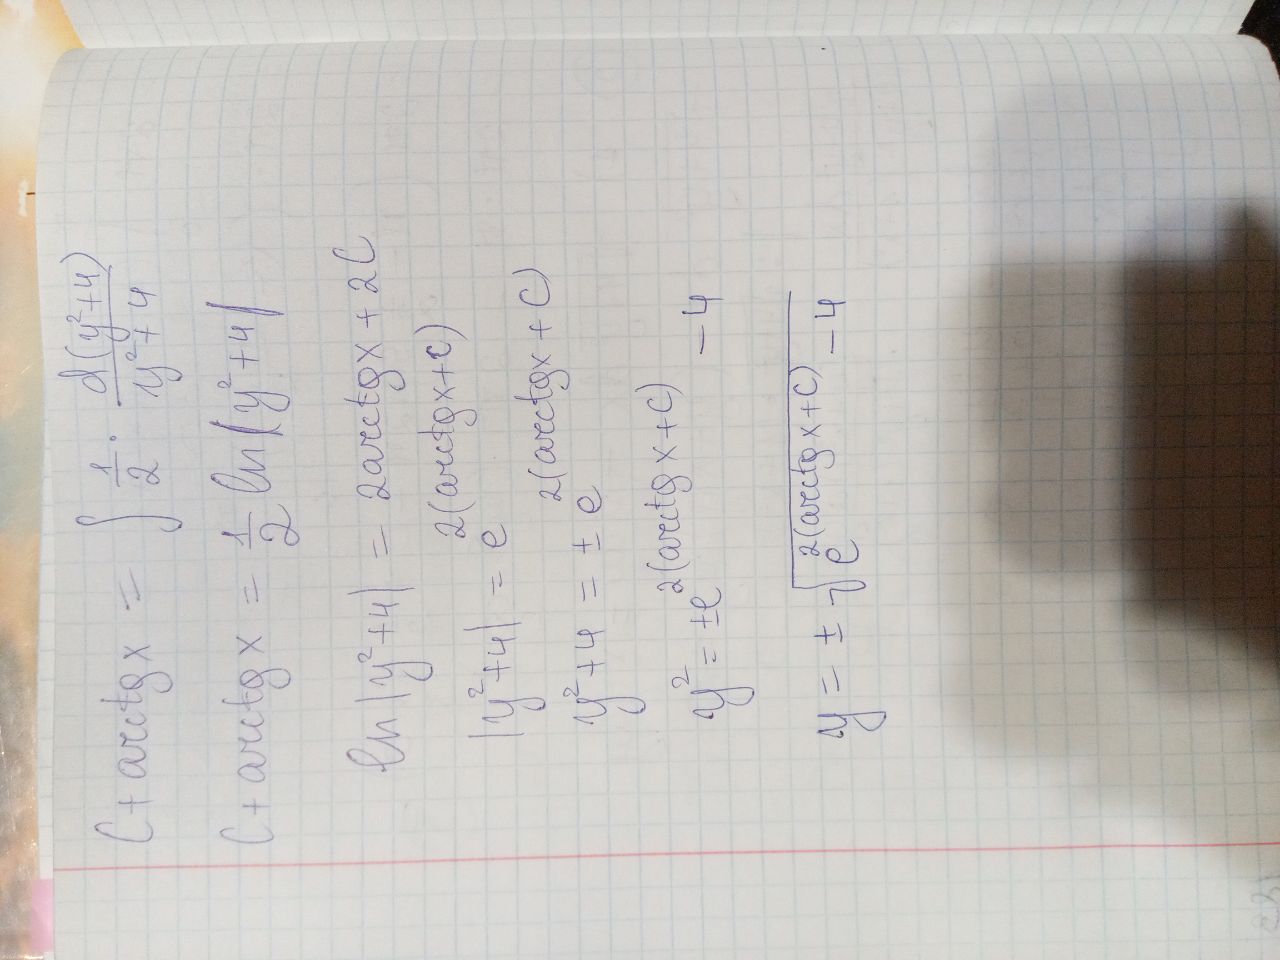 C + arctg x = ∫ 1/2 · d(y²+4)/(y²+4)
C + arctg x = 1/2 ln|y²+4|
ln|y²+4| = 2arctgx + 2C
|y²+4| = e^(2(arctgx+C))
y²+4 = ± e^(2(arctgx + C))
y² = ±e^(2(arctg x+C)) - 4
y = ± √(e^(2(arctg x+C)) - 4)